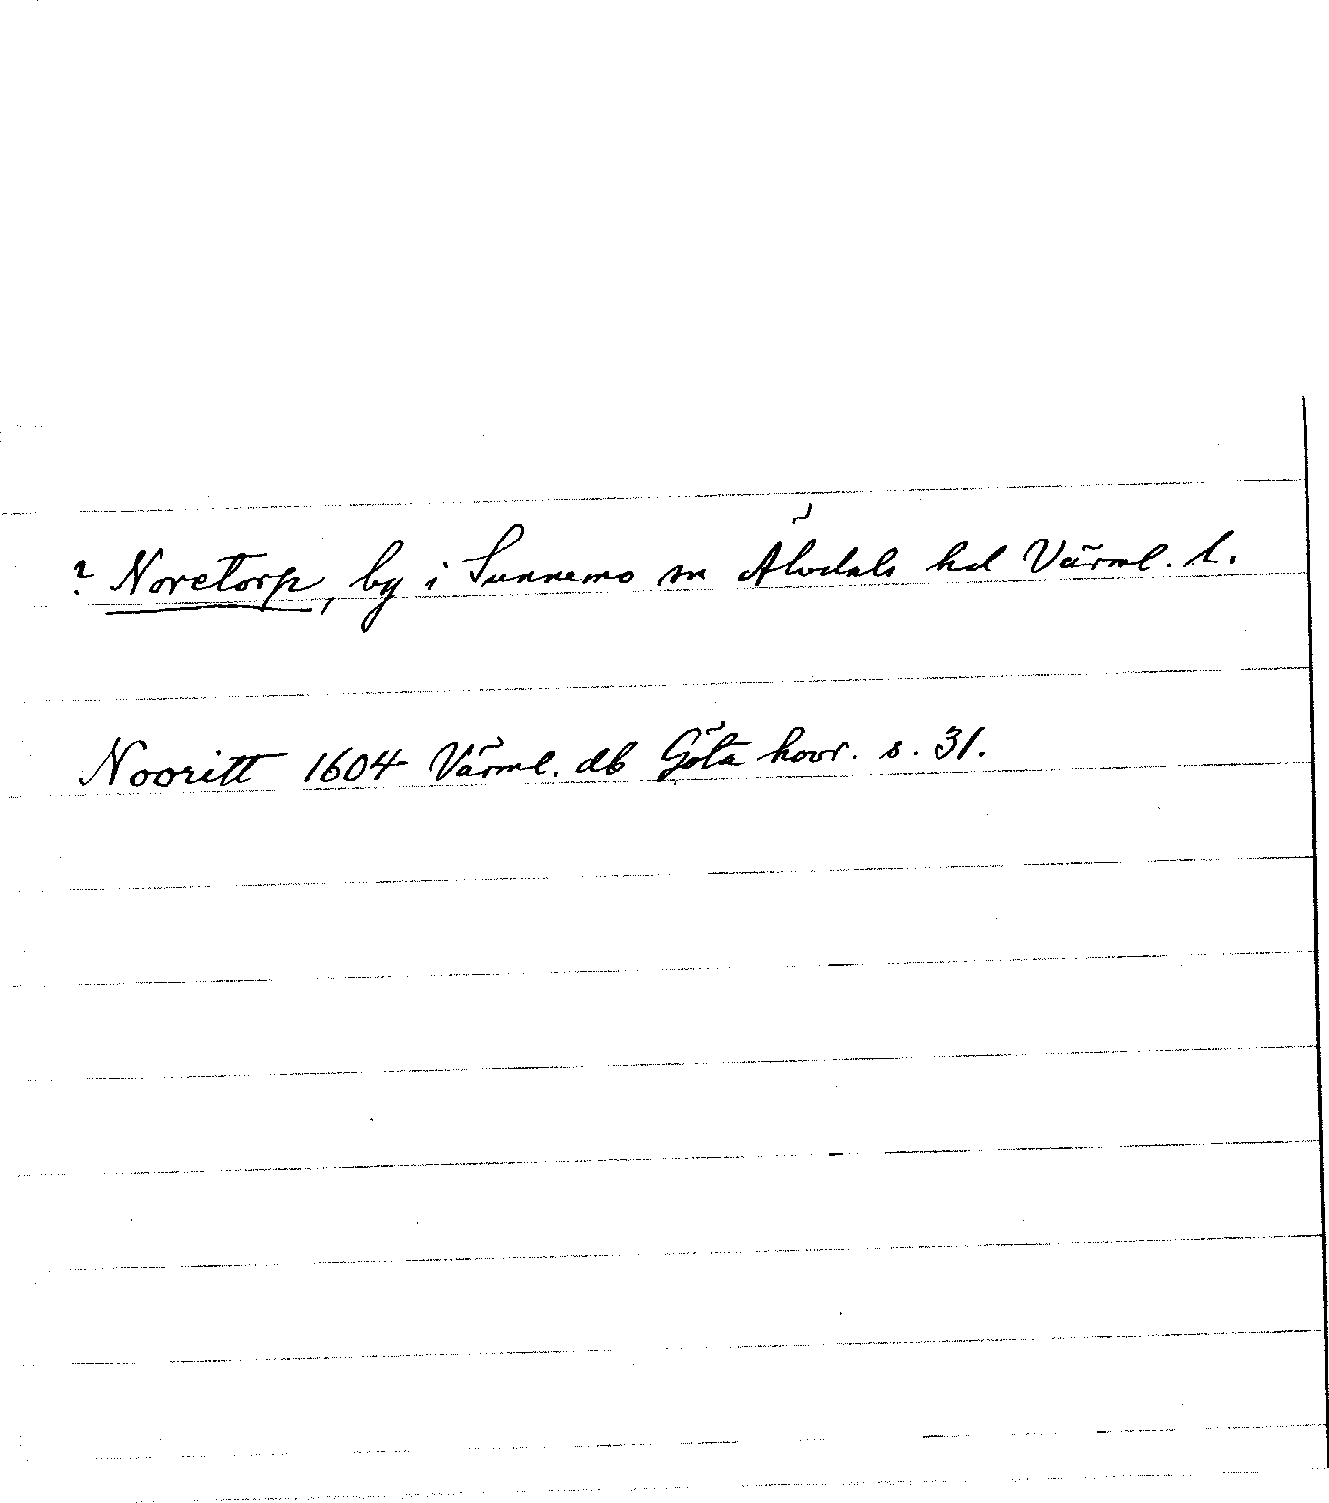 ? Noretorp, by i Sunnemo sn Älvdals hd Värml. l.
Nooritt 1604 Värml. db Göta hovr. s. 31.